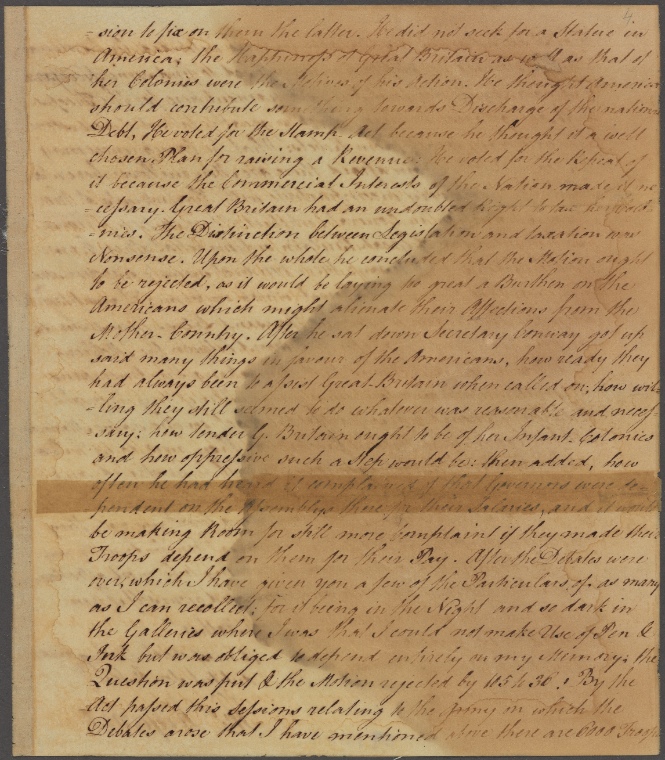 4.
-sion to fix on them the latter. He did not seek for a Statue in
America; the Happiness of Great Britain as well as that of
her Colonies were the Motives of his Action. He thought America
should contribute something towards Discharge of the nation
Debt, He voted for the Stamp Act because he thought it a well
chosen Plan for raising a Revenue: He voted for the Repeal of
it because the Commercial Interests of the Nation made it ne
-cessary. Great Britain had an undoubted Right to tax her Colo
-nies. The Distinction between Legislation and taxation was
Nonsense. Upon the whole he concluded that the Motion ought
to be rejected, as it would be laying too great a Burthen on the
Americans which might alienate their Affections from the
Mother-Country. After he sat down Secretary Conway got up
said many things in favour of the Americans, how ready they
had always been to assist Great-Britain when called on; how wil
-ling they still seemed to do whatever was reasonable and neces
-sary: how tender G. Britain ought to be of her Infant Colonies
and how oppressive such a Step would be: then added, how
often he had heard it complained of that Governors were de-
pendent on the Assemblys there for their Salaries, and it would
be making Room for still more Complaint if they made their
Troops depend on them for their Pay. After the Debates were
over, which I have given you a few of the Particulars of, as many
as I can recollect; for it being in the Night and so dark in
the Galleries where I was that I could not make Use of Pen &
Ink but was obliged to depend entirely on my Memory; the
Question was put & the Motion rejected by 105 to 36. By the
Act passed this sessions relating to the Army on which the
Debates arose that I have mentioned above there are 6000 Troops